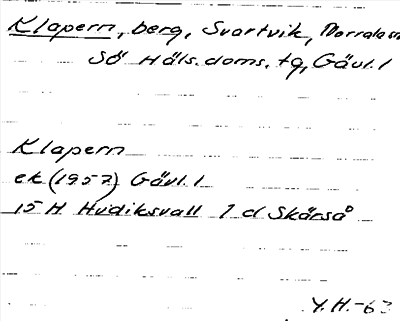 Klapern, berg, Svartvik, Norrala sn
Sö Häls. doms. tg, Gävl. l
Klapern
ek (1957) Gävl. l
15 H Hudiksvall 1 d Skärså
Y.H.-63